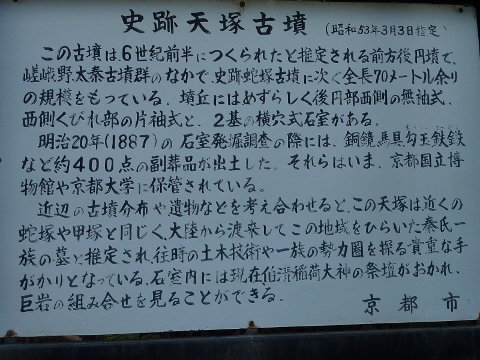 史跡天塚古墳
(昭和53年3月3日指定)
この古墳は、6世紀前半につくられたと推定される前方後円墳で、
嵯峨野太秦古墳群のなかで、史跡蛇塚古墳に次ぐ全長70メートル余り
の規模をもっている。墳丘にはめずらしく後円部西側の無袖式、
西側くびれ部の片袖式と、2基の横穴式石室がある。
明治20年(1887)の石室発掘調査の際には、銅鏡、馬具、勾玉、鉄鏃
など約400点の副葬品が出土した。それらはいま、京都国立博
物館や京都大学に保管されている。
近辺の古墳分布や遺物などを考え合わせると、この天塚は近くの
蛇塚や甲塚と同じく、大陸から渡来してこの地域をひらいた秦氏一
族の墓と推定され、往時の土木技術や一族の勢力圏を探る貴重な手
がかりとなっている。石室内には現在伯清稲荷大神の祭壇がおかれ、
巨岩の組み合せを見ることができる。
京都市